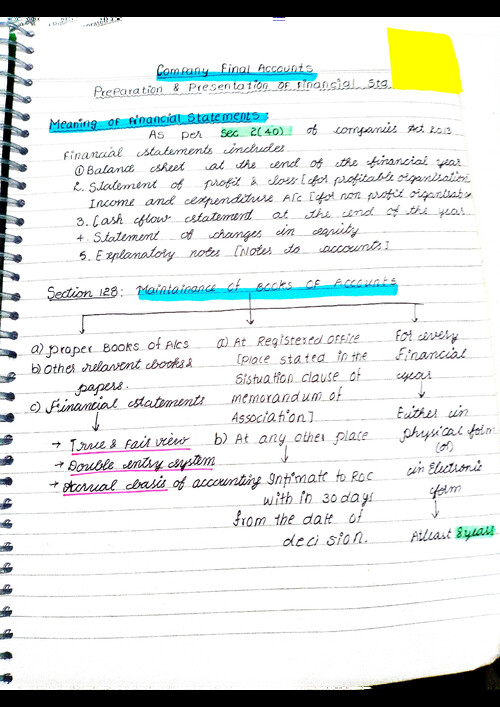 Company Final Accounts
Preparation & Presentation of Financial Sta
Meaning of Financial Statements:
As per Sec 2(40) of companies Act 2013
Financial statements includes
① Balance sheet at the end of the financial year
2. Statement of profit & loss [for profitable organisation
Income and expenditure A/c [for non profit organisation
3. Cash flow statement at the end of the year
4. Statement of changes in equity
5. Explanatory notes [Notes to accounts]
Section 128: Maintainance of Books OF Accounts
a) proper Books of A/cs
b) Other relavent books &
papers.
c) Financial statements
→ True & Fair view
→ Double entry system
→ Accrual basis of accounting
a) At Registered office
[Place stated in the
Sistuation clause of
memorandum of
Association]
b) At any other place
Intimate to ROC
with in 30 days
from the date of
deci sion.
For every
Financial
year
Either in
physical form
(or)
in Electronic
form
Atleast 8 years